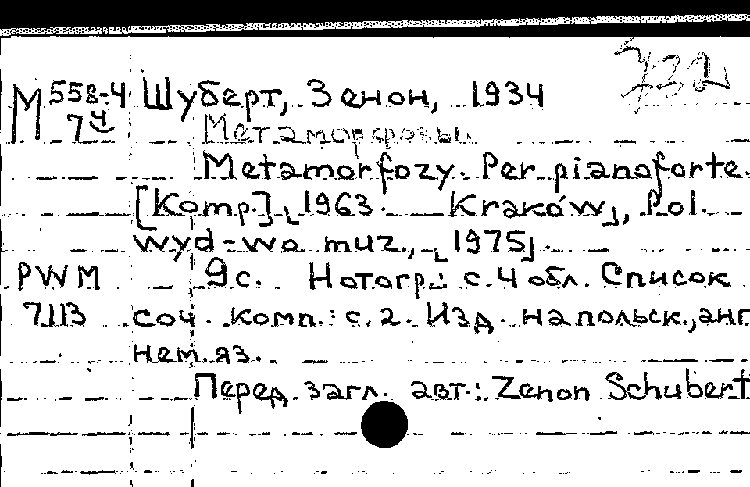 732
М 558-4 Шуберт, Зенон, 1934
7ч Метаморфозы
Metamorfozy. Per pianoforte.
[Komp.], 1963. Kraków, Pol.
wyd-wo muz., [1975].
PWM 9 с. Нотогр.: с. 4 обл. Список
7113 соч. комп.: с. 2. Изд. на польск., анг
нем. яз.
Перед. загл. авт.: Zenon Schubert